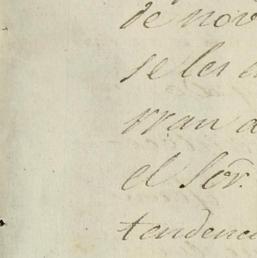 de nov
se les
rran a
el Sor.
tendenc